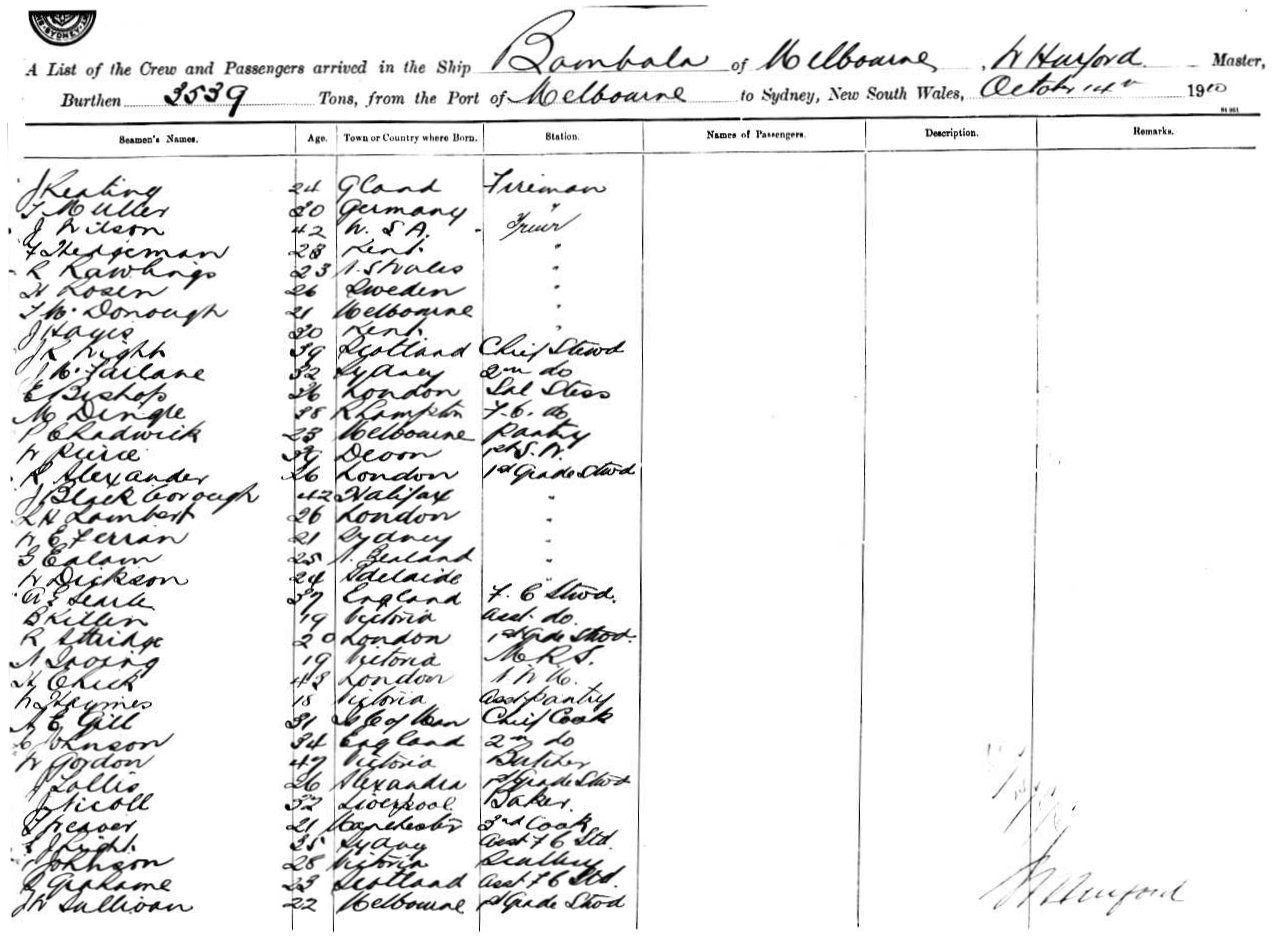 SYDNEY
A List of the Crew and Passengers arrived in the Ship Bombala of Melbourne, W Hurford Master,
Burthen 3539 Tons, from the Port of Melbourne to Sydney, New South Wales, October 14th 1910
Seamen's Names. Age. Town or Country where Born. Station. Names of Passengers. Description. Remarks.
J Keating 24 Fireman
F Muller 30 Germany "
J Wilson 42 U.S.A.
28 Kent "
R Rawlings 23 N. S Wales "
H Rosen 26 Sweden "
T McDonough 21 Melbourne "
J Hayes 30 Kent "
J R Wight 39 Scotland Chief Stwd
J McFarlane 32 Sydney 2nd do
E Bishop 36 London Sal Stess
M Dingle 38 R'hampton F. C. do
P Chadwick 23 Melbourne Pantry
W Pierce 39 Devon 1st S. W.
R Alexander 26 London 1st Grade Stwd
J Blackborough 42 Halifax "
L H Lambert 26 London "
W E Ferrian 21 Sydney "
G Ealam 25 N. Zealand "
W Dickson 24 Adelaide "
A E Searle 37 England F. C Stwd.
B Killen 19 Victoria Asst. do.
R Attridge 20 London 1st Grde Stwd.
A Irving 19 Victoria M.R.S.
H Chick 48 London
W Haymes 18 Victoria Asst Pantry
A E Gill 31 Isle of Man Chief Cook
C Johnson 34 England 2nd do
W Gordon 47 Victoria Butcher
J Lollis 26 Alexandra 1st Grade Stwd
J Nicoll 32 Liverpool Baker.
F Weaver 21 Manchester 3rd Cook
J Light 35 Sydney Asst F C Std.
Johnson 28 Victoria Scullery
Grahame 23 Scotland Asst F C Std.
J W Sullivan 22 Melbourne 1st Grade Stwd
W Hurford